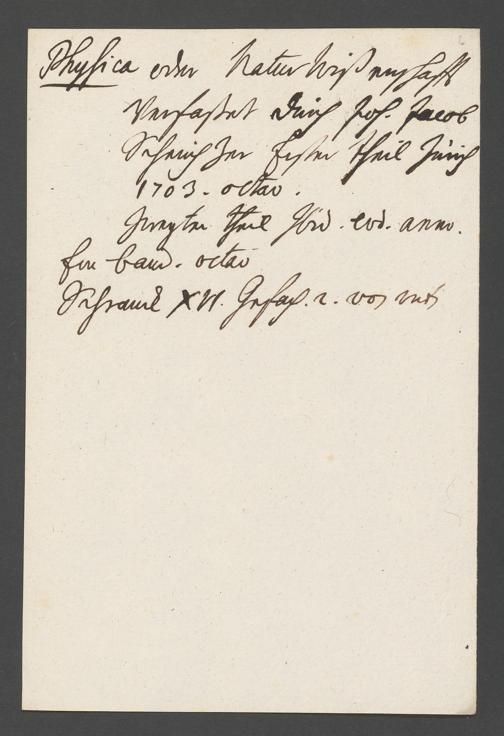 Physica oder Natur Wißenschafft
Verfaßet durch Joh. Jacob
Scheuchzer Erster theil Zürich
1703. octav.
Zweyter theil Ibid. eod. anno.
Ein band. octav
Schranck XVI. Gefach. 2. von unten